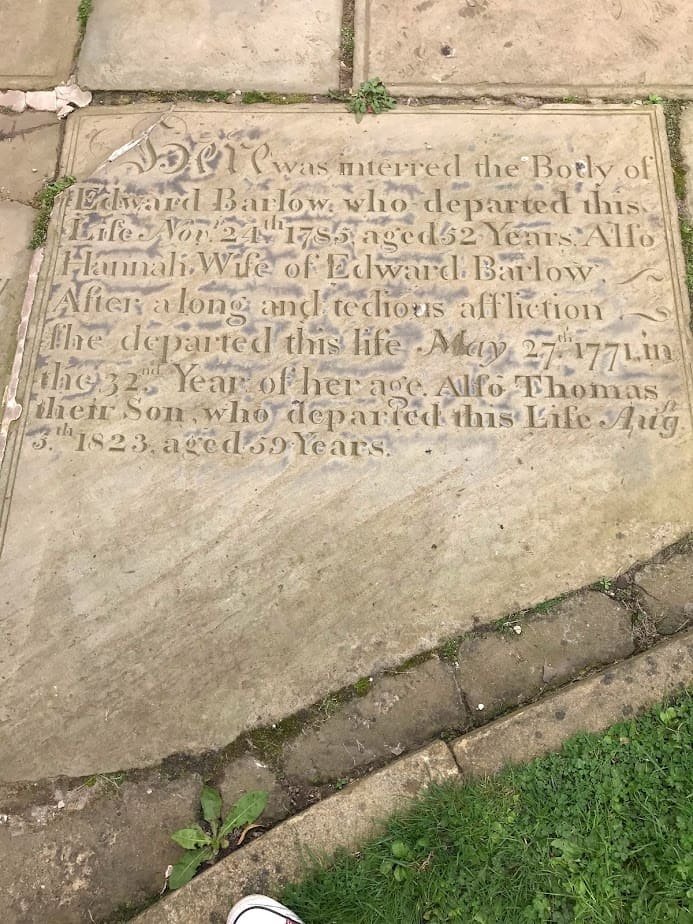 Here was interred the Body of
Edward Barlow, who departed this
Life Novr. 24th. 1785, aged 52 Years. Alſo
Hannah Wife of Edward Barlow
After a long and tedious affliction
ſhe departed this life May 27th. 1771, in
the 32nd Year of her age. Alſo Thomas
their Son, who departed this Life Augst.
5.th 1823, aged 59 Years.